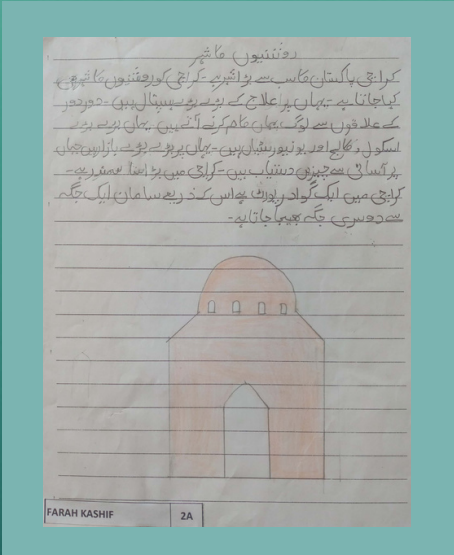 روشنیوں کا شہر
کراچی پاکستان کا سب سے بڑا شہر ہے - کراچی کو روشنیوں کا شہر بھی
کہا جاتا ہے - یہاں پر علاج کے بڑے بڑے ہسپتال ہیں - دور دور
کے علاقوں سے لوگ یہاں کام کرنے آتے ہیں - یہاں بڑے بڑے
اسکول، کالج اور یونیورسٹیاں ہیں - یہاں پر بڑے بڑے بازار ہیں جہاں
پر آسانی سے چیزیں دستیاب ہیں - کراچی میں بڑا سا سمندر ہے -
کراچی میں ایک گوادر پورٹ ہے اس کے ذریعے سامان ایک جگہ
سے دوسری جگہ بھیجا جاتا ہے -
FARAH KASHIF 2A